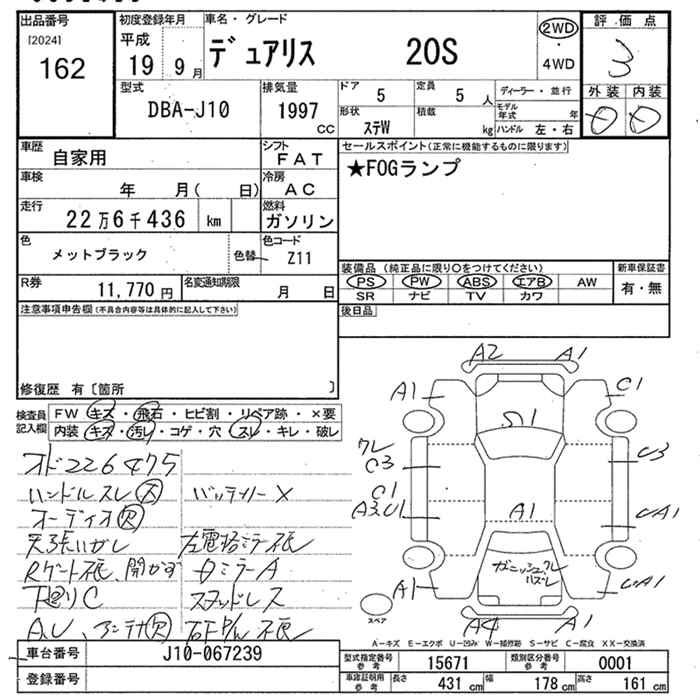 出品番号
[2024]
162
初度登録年月
平成
19 9月
車名・グレード
デュアリス 20S
2WD
・
4WD
評価点
3
外装 内装
D D
型式
DBA-J10
排気量
1997 CC
ドア 5
定員 5 人
形状 ステW
積載 kg
ディーラー・並行
モデル年式 年
ハンドル 左・右
車歴 自家用
シフト FAT
車検 年 月( 日)
冷房 AC
走行 22万6千436 km
燃料 ガソリン
色 メットブラック 色替
色コード Z11
R券 11,770円
名変通知期限 月 日
セールスポイント(正常に機能するものに限ります)
★FOGランプ
装備品(純正品に限り○をつけてください)
PS PW ABS エアB AW
SR ナビ TV カワ
新車保証書
有・無
後日品
注意事項申告欄(不具合内容等は具体的に記入して下さい)
修復歴 有〔箇所 〕
検査員記入欄
FW キズ・飛石・ヒビ割・リペア跡・×要
内装 キズ・汚レ・コゲ・穴・スレ・キレ・破レ
オド226475
ハンドルスレ大 バッテリー×
オーディオ欠
天張いがし
Rゲート
下廻りC
A.U、アンテナ欠
左電格ミラー
白ミラーA
スタッドレス
A2 A1
A1 C1
S1
ワレ
C3
C1
A3U1
U3
UA1
A1
ガーニッシュワレ
ハズレ
A1 UA1
A4 A1
スペア
A-キズ E-エクボ U-凹み W-補修跡 S-サビ C-腐食 XX-交換済
車台番号 J10-067239
登録番号
型式指定番号参考 15671
類別区分番号参考 0001
車庫証明用参考 長さ 431 cm 幅 178 cm 高さ 161 cm